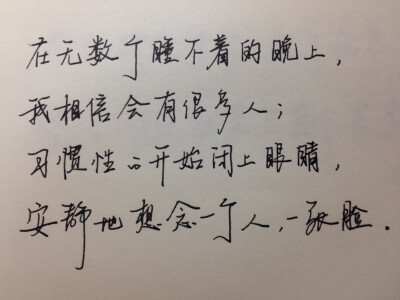 在无数个睡不着的晚上，
我相信会有很多人；
习惯性的开始闭上眼睛，
安静地想念一个人，一张脸．